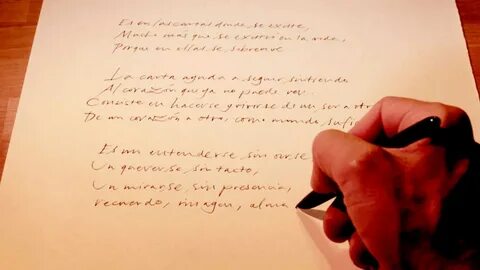 Es en las cartas donde se existe,
Mucho más que se existió en la vida,
Porque en ellas se sobrevive
La carta ayuda a seguir sintiendo
Al corazón que ya no puede ver.
Consiste en hacerse de un ser a otro
De un corazón a otro, como mundo, sufi
Es un entenderse, sin oirse,
Un quererse, sin tacto,
Un mirarse, sin presencia,
recuerdo, imagen, alma